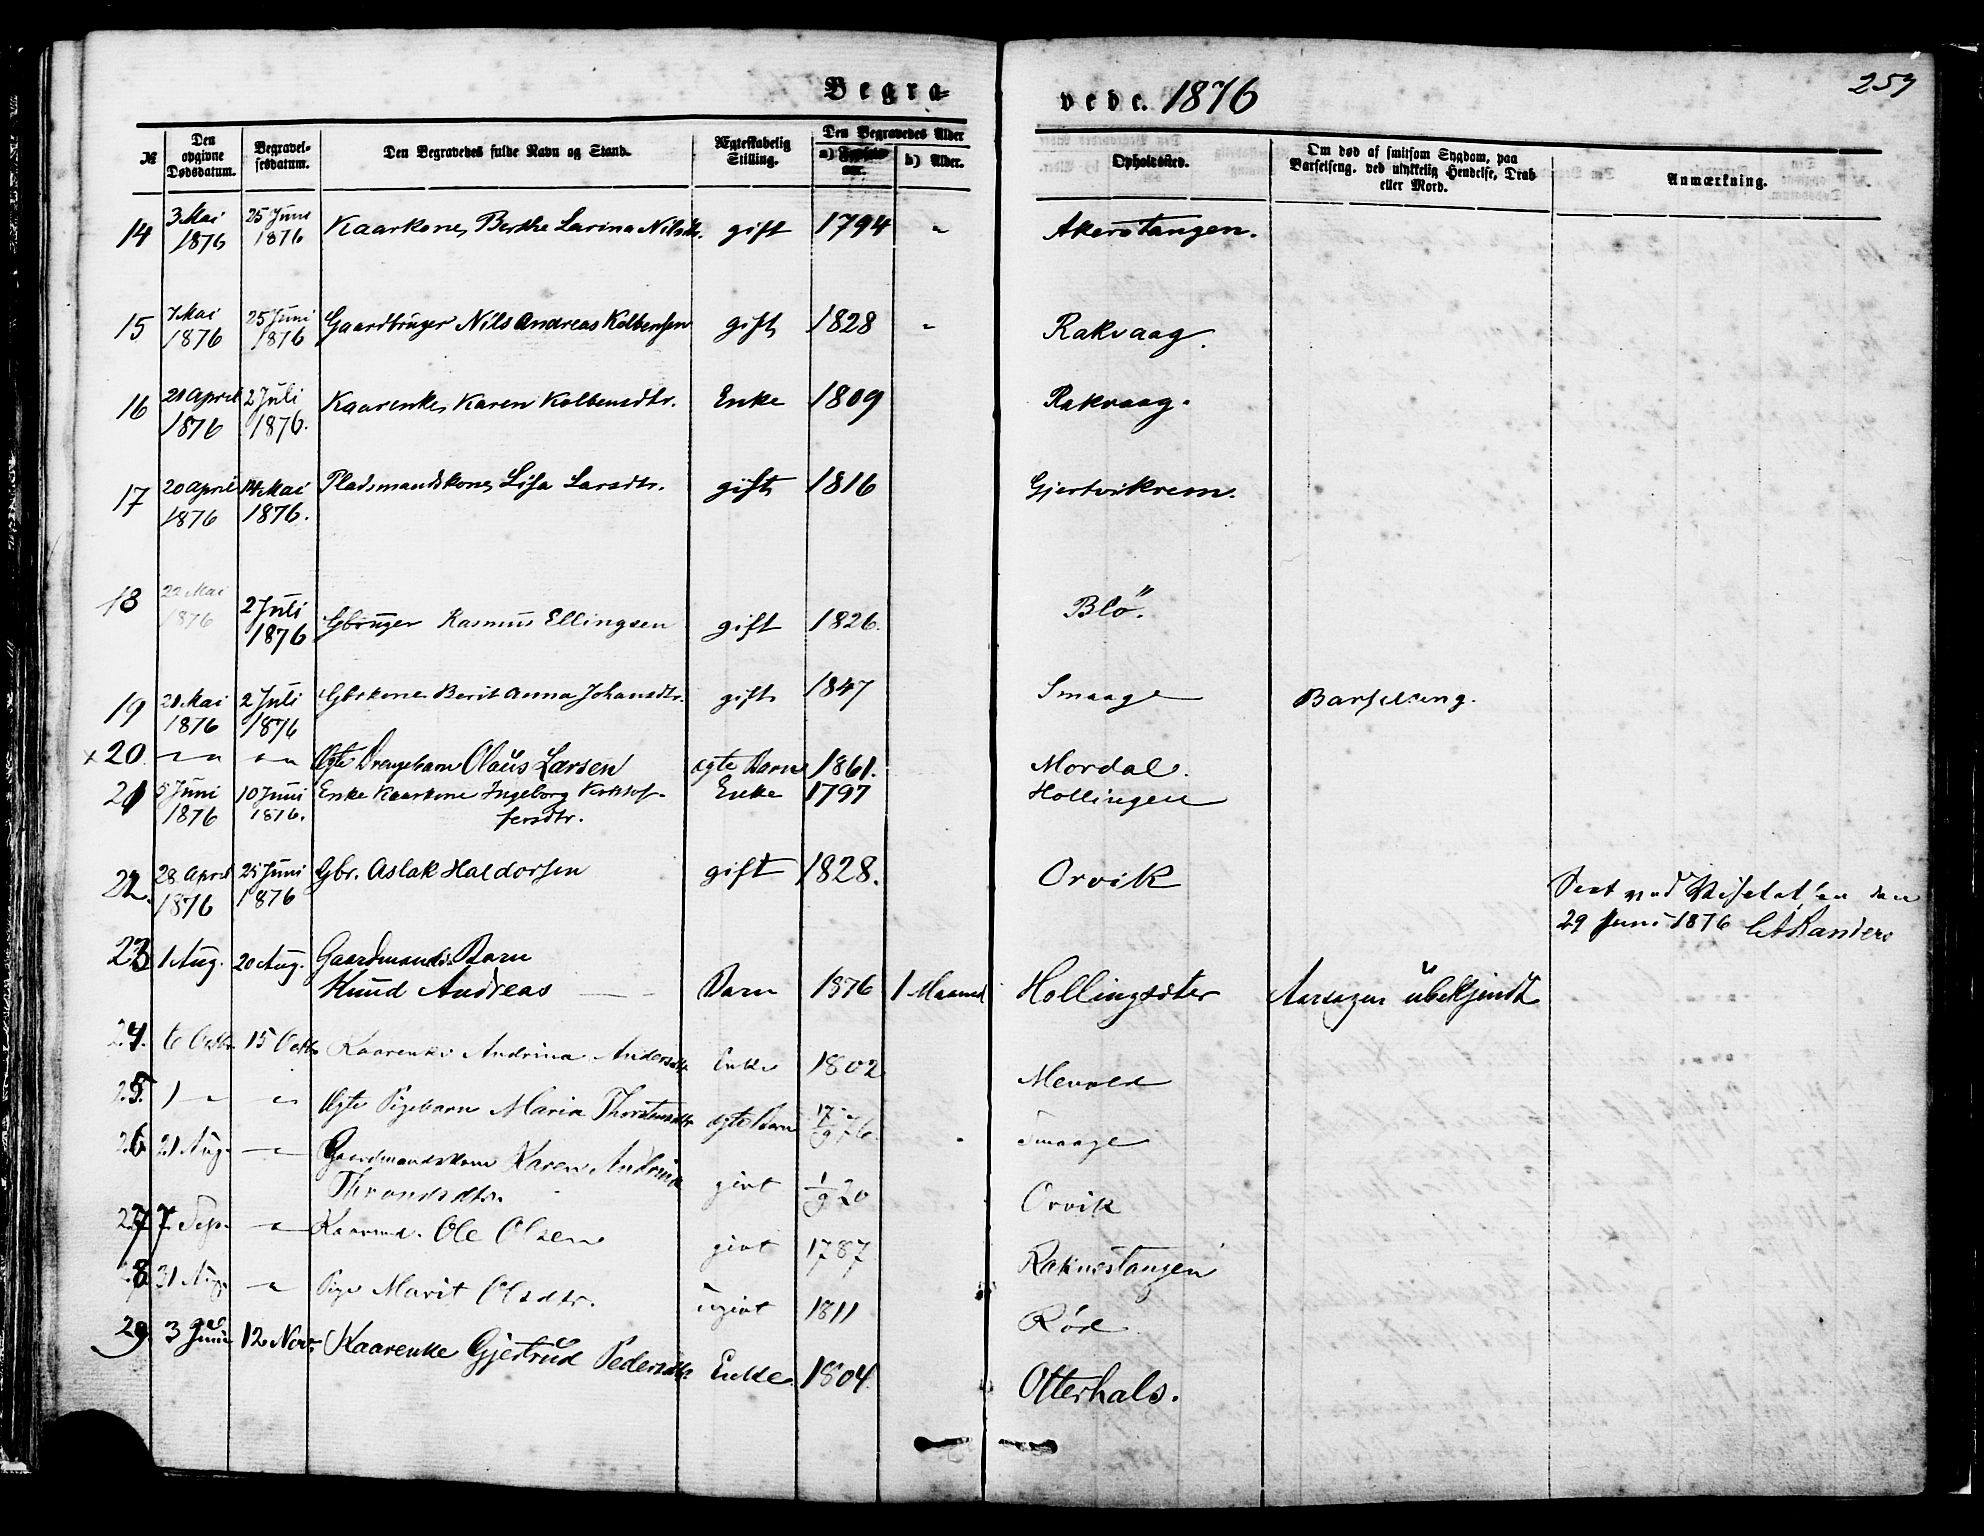 Begra-
vede. 1876
257
№
Den opgivne Dødsdatum.
Begravel-sesdatum.
Den Begravedes fulde Navn og Stand.
Ægteskabelig Stilling.
Den Begravedes Alder
a)
b) Alder.
Opholdssted.
Om død af smitsom Sygdom, paa Barselseng, ved ulykkelig Hendelse, Drab eller Mord.
Anmærkning.
14 3 Mai 1876 25 Juni 1876 Kaarkone, Berthe Larina Nilsdtr. gift 1794 " Akerstangen.
15 7 Mai 1876 25 Juni 1876 Gaardbruger Nils Andreas Kolbensen gift 1828 " Rakvaag.
16 21 April 1876 2 Juli 1876. Kaarenke, Karen Kolbensdtr. Enke 1809 Rakvaag.
17 20 April 1876 14 Mai 1876. Pladsmandskone, Lisa Larsdtr. gift 1816 Gjertvikrem.
18 22 Mai 1876 2 Juli 1876 Gbruger Rasmus Ellingsen gift 1826. Blø.
19 21 Mai 1876 2 Juli 1876 Gbrkone Berit Anna Johansdtr. gift 1847 Smaage Barselseng.
x 20. — " — " Ægte Drengebarn Olaus Larsen ægte Barn 1861. Mordal.
21 5 Juni 1876 10 Juni 1876. Enke Kaarkone Ingeborg Kristof-
fersdtr. Enke 1797 Hollingen
22. 28 April 1876 25 Juni 1876 Gbr. Aslak Haldorsen gift 1828. Orvik
Seet ved Visitatsen den
29 Juni 1876
23 1 Aug. 20 Aug. Gaardmands Barn
Knud Andreas — Barn 1876 1 Maaned Hollingsæter Aarsagen ubekjendt
24. 6 Octbr. 15 Octbr Kaarenke Andrina Andersdtr Enke 1802
25. 1 — " " Ægte Pigebarn Maria Thorstensdtr ægte Barn 17/9 76. Smaage
26 21 Aug. — " Gaardmandskone Karen Andrina
Throndsdtr. givt 1/9 20 Orvik
27 7 Sep. — " Kaarmd. Ole Olsen givt 1787 Raknestangen
28 31 Aug. — " Pige Marit Olsdtr. ugivt 1811 Rød
29. 3 Juni 12 Nov. Kaarenke Gjertrud Pedersdtr Enke 1804. Otterhals.